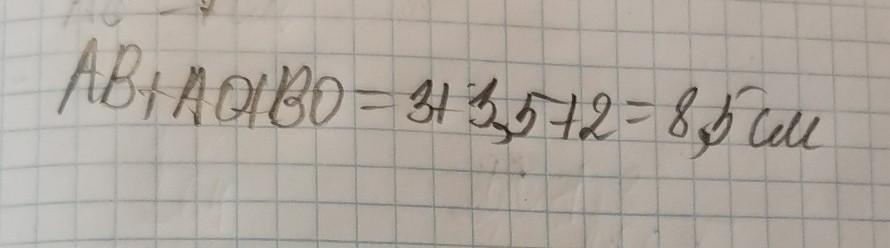 AB+AO+BO=3+3,5+2=8,5см